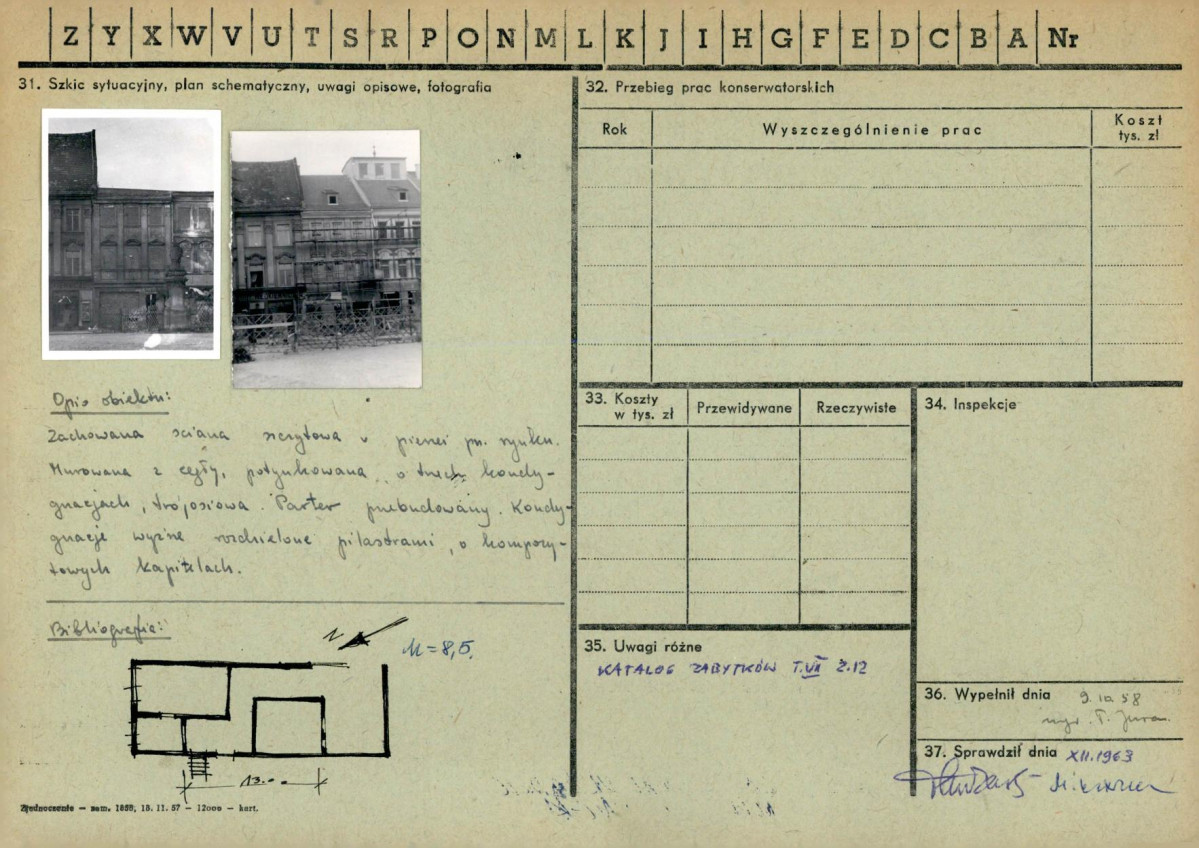 Z Y X W V U T S R P O N M L K J I H G F E D C B A Nr
31. Szkic sytuacyjny, plan schematyczny, uwagi opisowe, fotografia
Opis obiektu:
Zachowana ściana szczytowa w pierzei pn. rynku.
Murowana z cegły, potynkowana, o trzech kondy-
gnacjach, trójosiowa. Parter przebudowany. Kondy-
gnacje wyższe rozdzielone pilastrami, o kompozy-
towych kapitelach.
Bibliografia:
N
M=8,5.
13.00
Zjednoczenie – zam. 1858, 18. 11. 57 – 12000 – kart.
32. Przebieg prac konserwatorskich
Rok
Wyszczególnienie prac
Koszt
tys. zł
33. Koszty
w tys. zł
Przewidywane
Rzeczywiste
34. Inspekcje
35. Uwagi różne
KATALOG ZABYTKÓW T.VII Z.12
36. Wypełnił dnia
9. 10. 58
mgr. T.
37. Sprawdził dnia
XII.1963